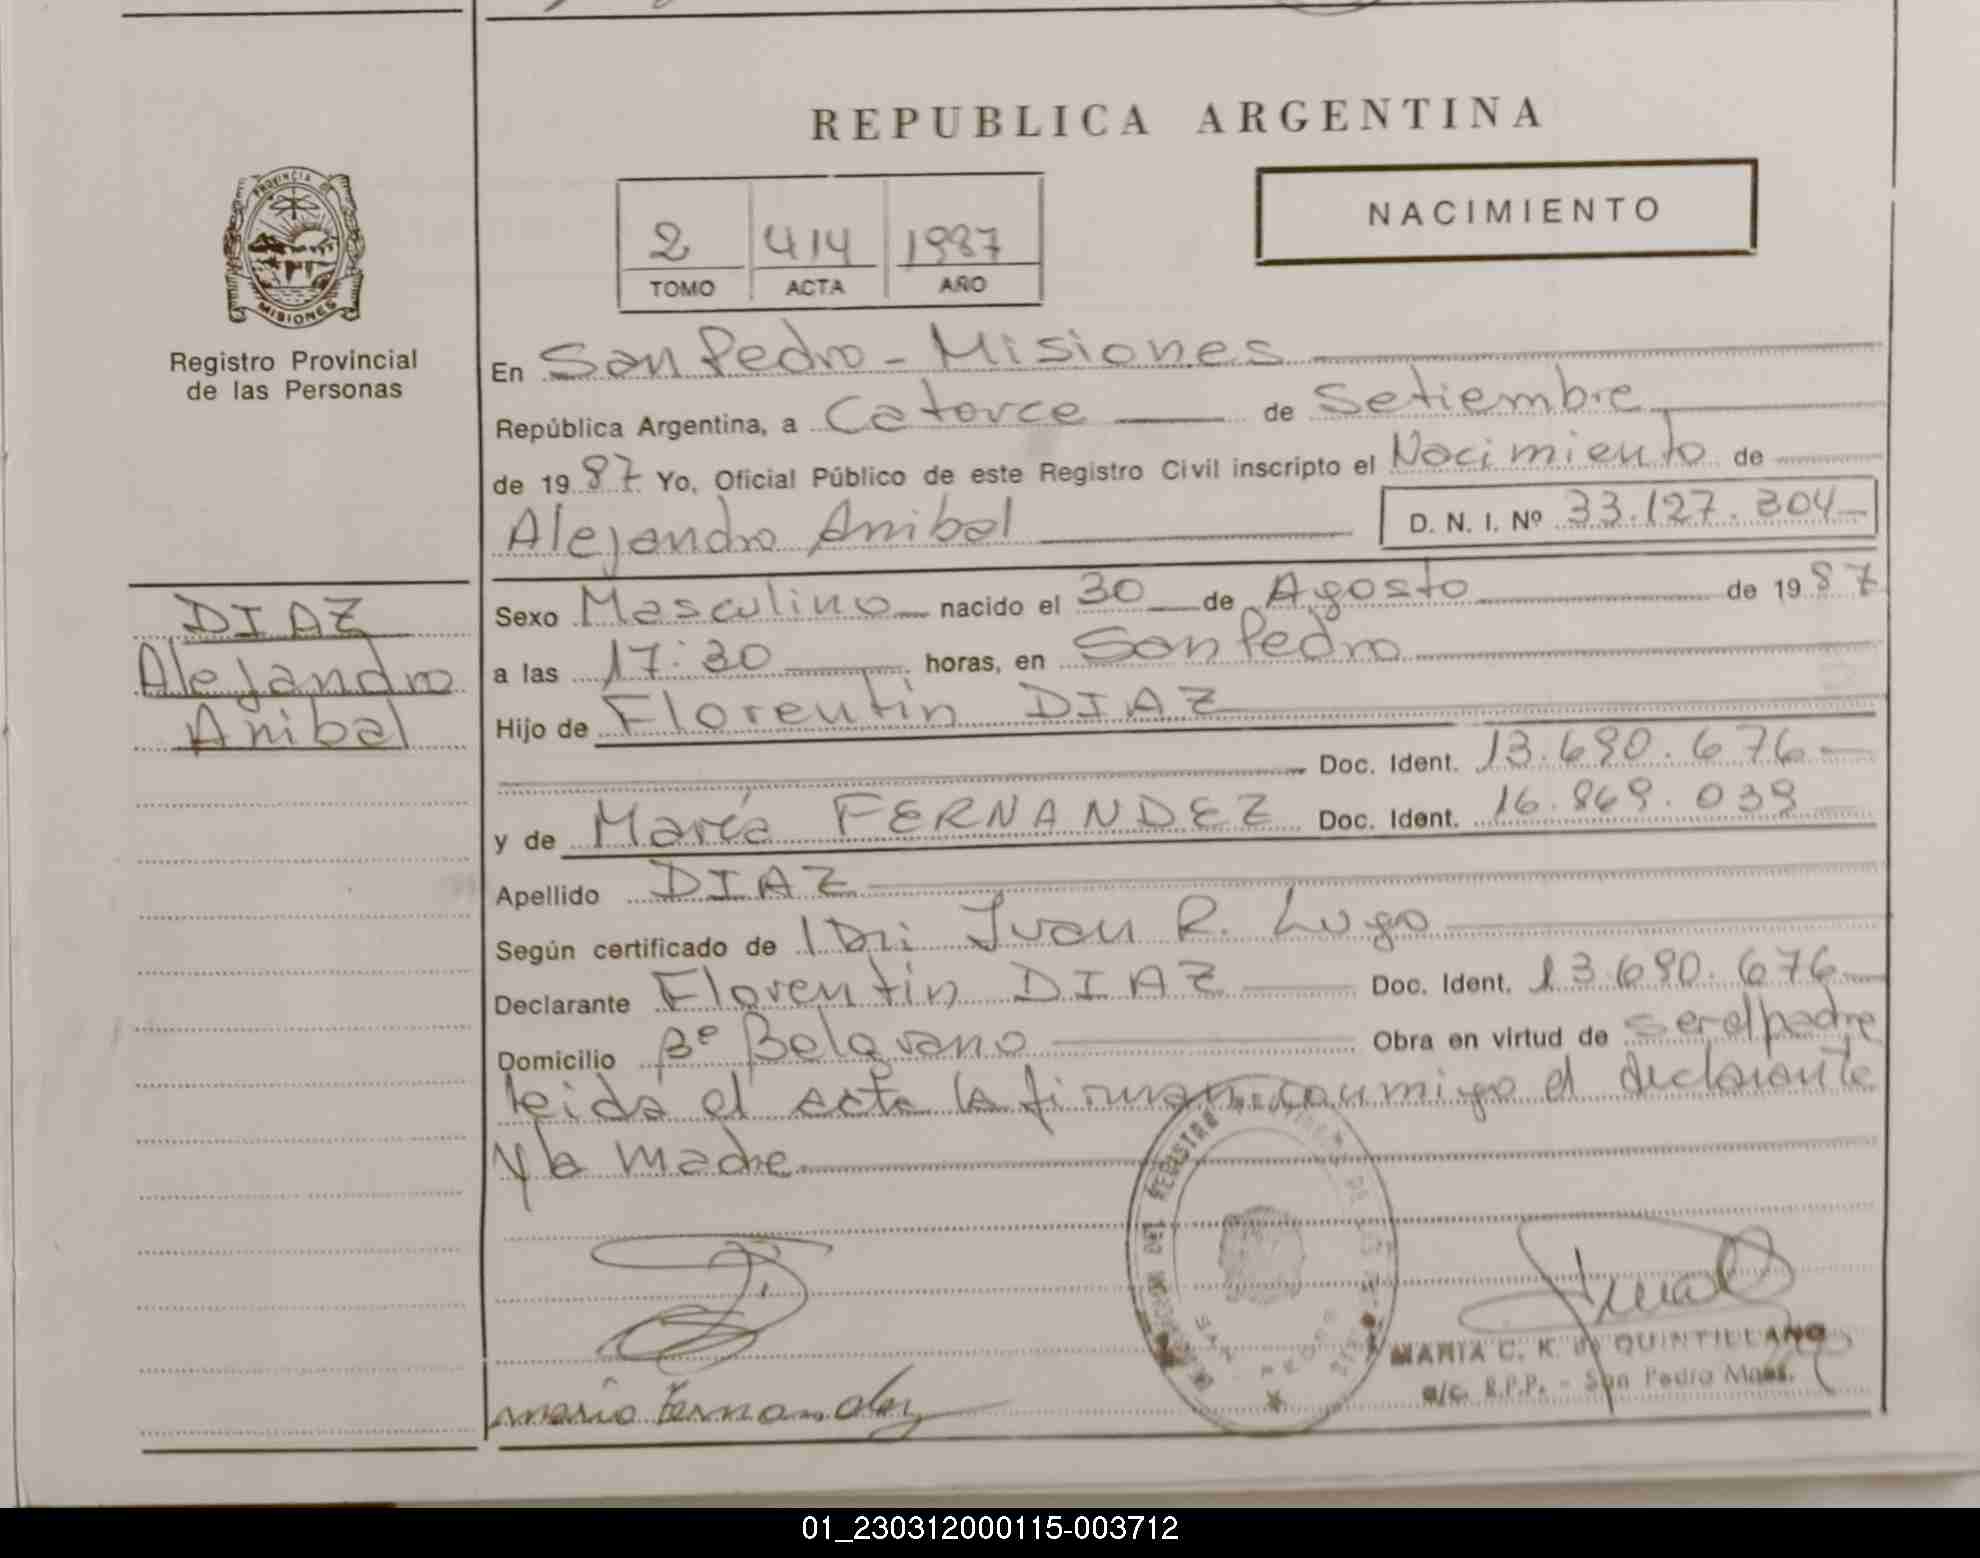 REPUBLICA ARGENTINA
NACIMIENTO
2 414 1987
TOMO ACTA AÑO
PROVINCIA DE
MISIONES
Registro Provincial
de las Personas
En San Pedro - Misiones
República Argentina, a Catorce de Setiembre
de 1987 Yo, Oficial Público de este Registro Civil inscripto el Nacimiento de
Alejandro Anibal D. N. I. Nº 33.127.304
DIAZ
Alejandro
Anibal
Sexo Masculino nacido el 30 de Agosto de 1987
a las 17:30 horas, en San Pedro
Hijo de Florentín DIAZ
Doc. Ident. 13.690.676
y de María FERNANDEZ Doc. Ident. 16.869.039
Apellido DIAZ
Según certificado de Juan R. Lugo
Declarante Florentín DIAZ Doc. Ident. 13.690.676
Domicilio Bº Belgrano Obra en virtud de ser el padre
leida el acta la firman conmigo el declarante
y la madre
REGISTRO
SAN PEDRO
MARIA C. K. de QUINTILLANO
a/c. R.P.P. - San Pedro Mnes.
maria Fernandez
01_230312000115-003712